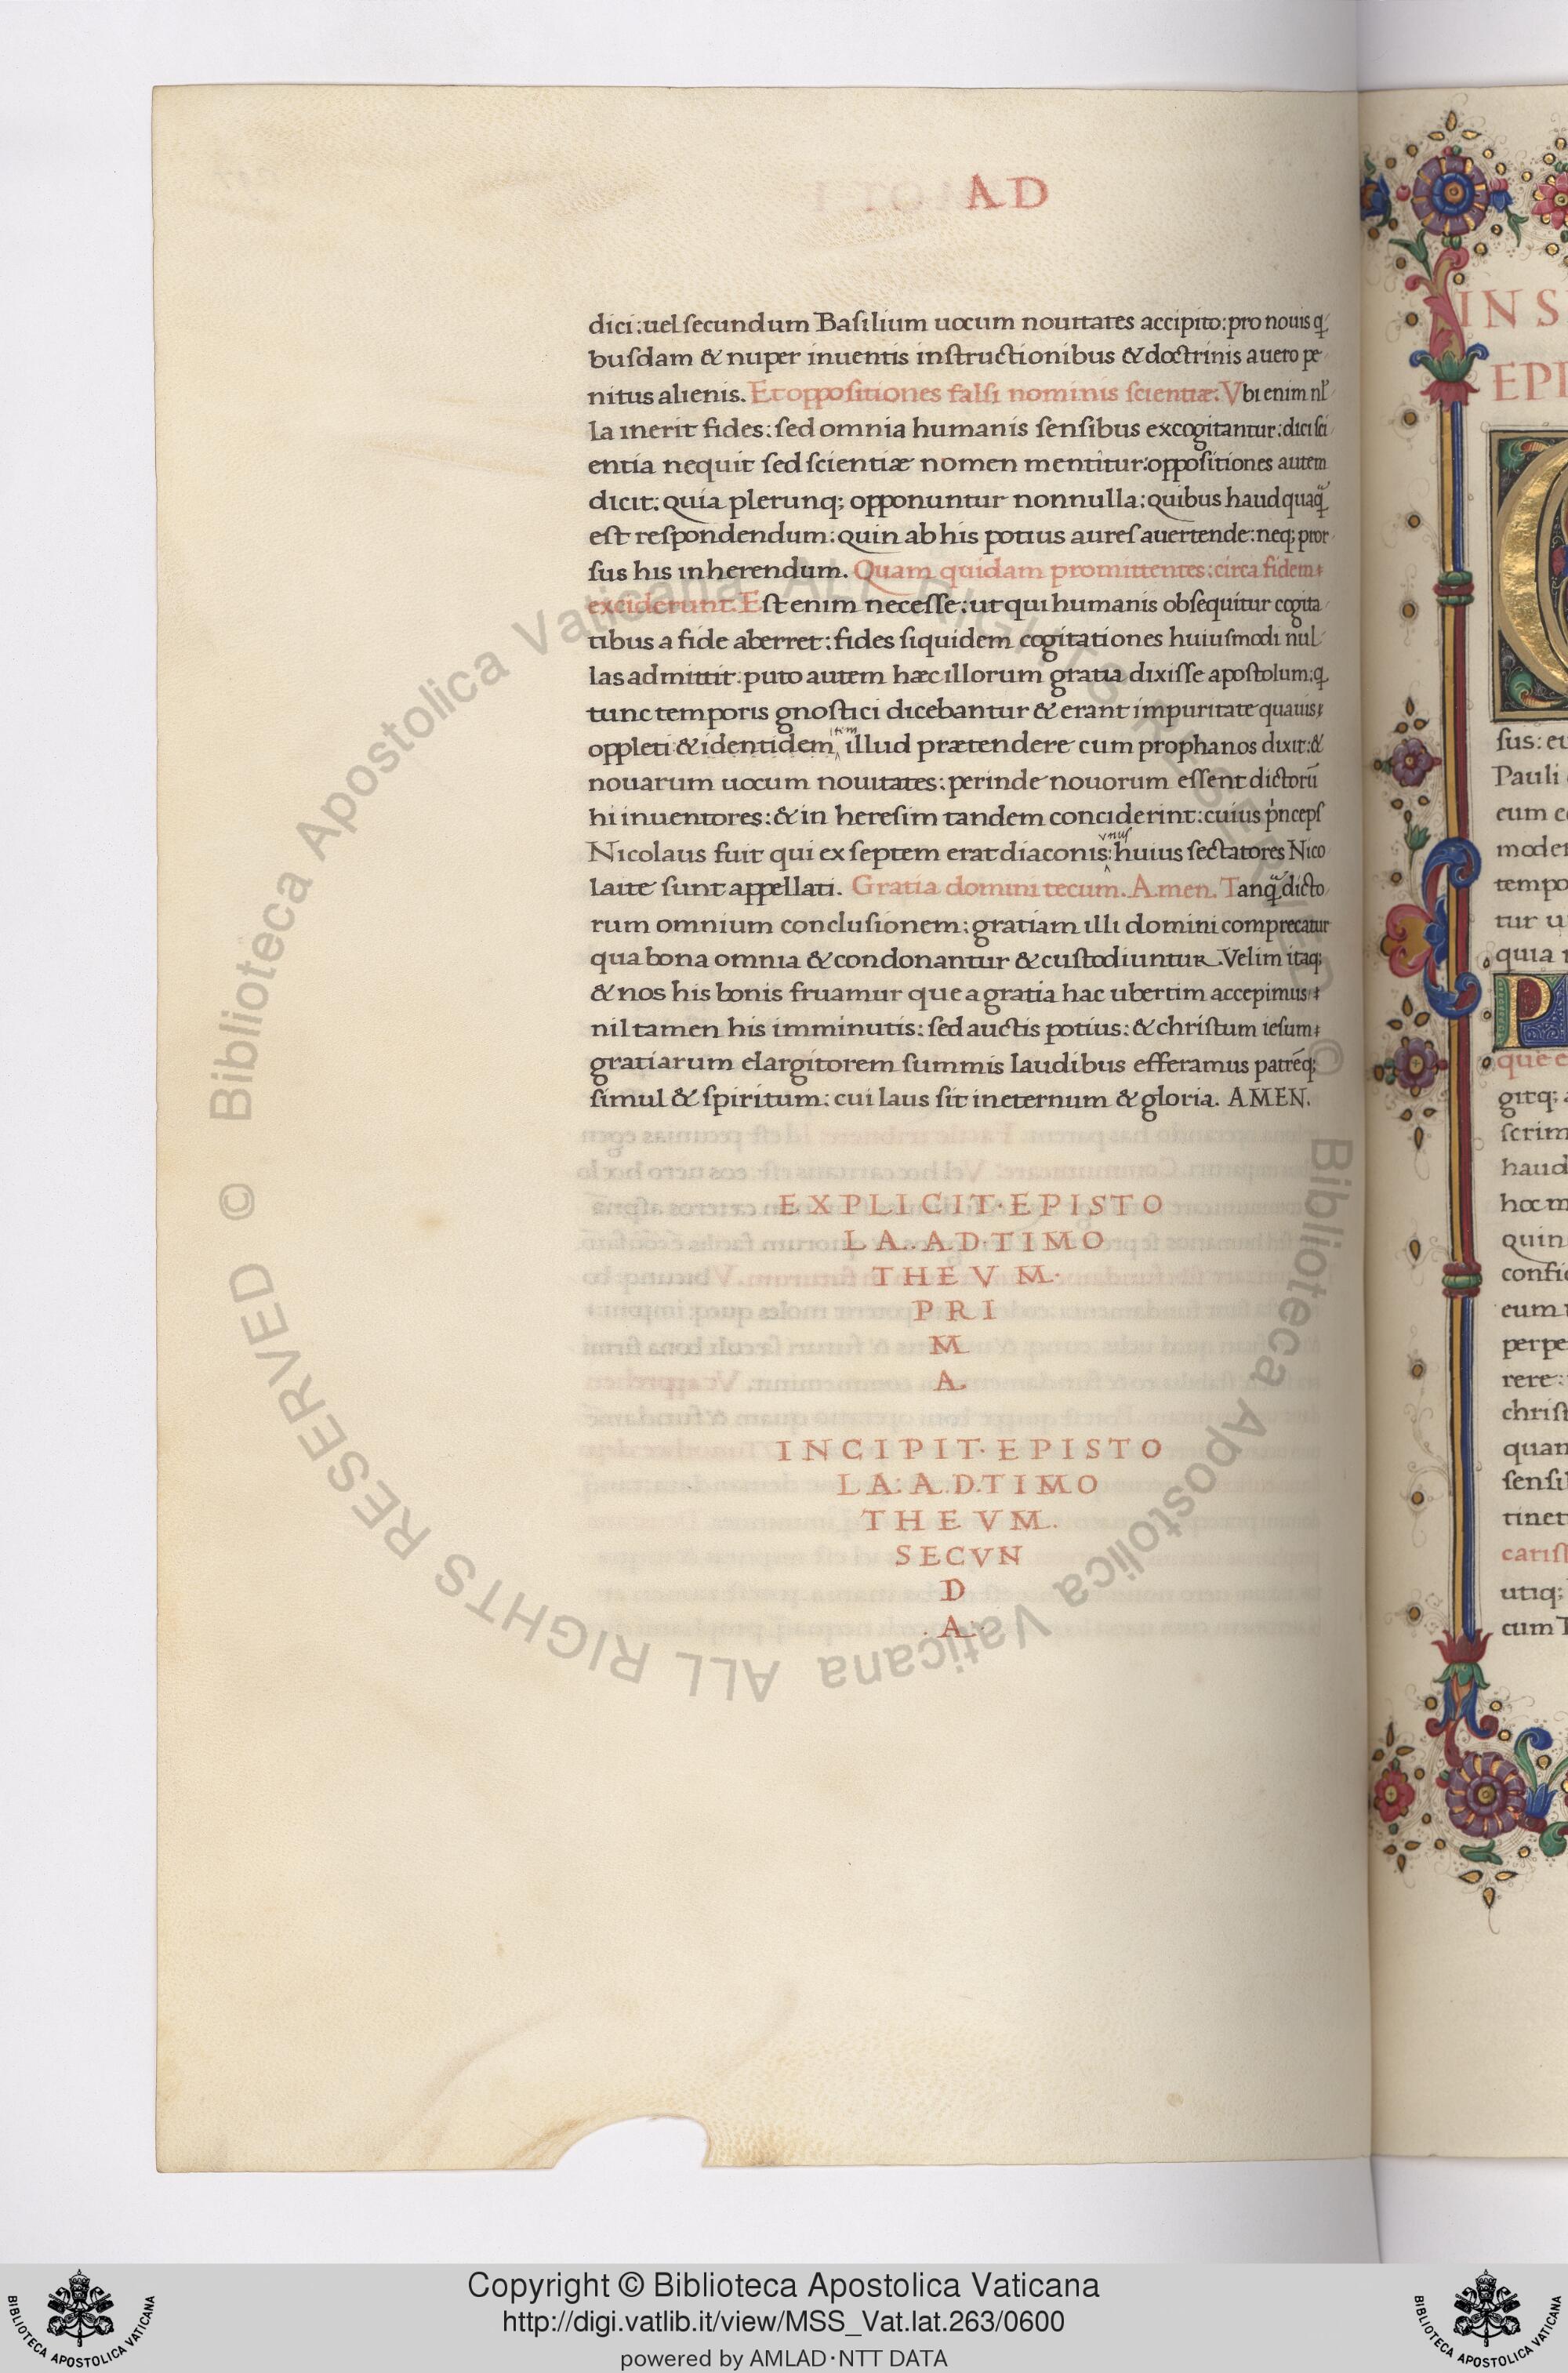 AD
dici:uel secundum Basilium uocum nouitates accipito:pro nouis q
busdam & nuper inuentis instructionibus & doctrinis a uero pe
nitus alienis. Et oppositiones falsi nominis scientiæ. Vbi enim nl̄
la inerit fides: sed omnia humanis sensibus excogitantur: dici sci
entia nequit sed scientiæ nomen mentitur: oppositiones autem
dicit: quia plerunq; opponuntur nonnulla: quibus haud quaq̃
est respondendum: quin ab his potius aures auertende: neq; pror
sus his inherendum. Quam quidam promittentes: circa fidem
exciderunt. Est enim necesse: ut qui humanis obsequitur cogita
tibus a fide aberret: fides siquidem cogitationes huiusmodi nul
las admittit: puto autem hæc illorum gratia dixisse apostolum: q
tunc temporis gnostici dicebantur & erant impuritate quauis
oppleti & identidem illud prætendere cum prophanos dixit: &
nouarum uocum nouitates: perinde nouorum essent dictorũ
hi inuentores: & in heresim tandem conciderint: cuius p̍nceps
vnus
Nicolaus fuit qui ex septem erat diaconis: huius sectatores Nico
laite sunt appellati. Gratia domini tecum. Amen. Tanq̃ dicto
rum omnium conclusionem: gratiam illi domini comprecatur
qua bona omnia & condonantur & custodiuntur. Velim itaq;
& nos his bonis fruamur que a gratia hac ubertim accepimus:
nil tamen his imminutis: sed auctis potius: & christum iesum
gratiarum elargitorem summis laudibus efferamus patrẽq;
simul & spiritum: cui laus sit in eternum & gloria. AMEN.
EXPLICIT·EPISTO
LA..AD·TIMO
THEVM·
PRI
M
A.
INCIPIT·EPISTO
LA: A.D.TIMO
THEVM.
SECVN
D
.A.
INS
EPI
sus: eu
Pauli
eum c
moder
tempo
tur u
quia
P
que e
gitq;
scrim
haud
hoc m
quin
confi
eum
perpe
rere:
christ
quan
sensi
tinet
carist
utiq;
cum
© Biblioteca Apostolica Vaticana ALL RIGHTS RESERVED
© Biblioteca Apostolica Vaticana ALL RIGHTS RESERVED
Copyright © Biblioteca Apostolica Vaticana
http://digi.vatlib.it/view/MSS_Vat.lat.263/0600
powered by AMLAD·NTT DATA
BIBLIOTECA APOSTOLICA VATICANA
BIBLIOTECA APOSTOLICA VATICANA